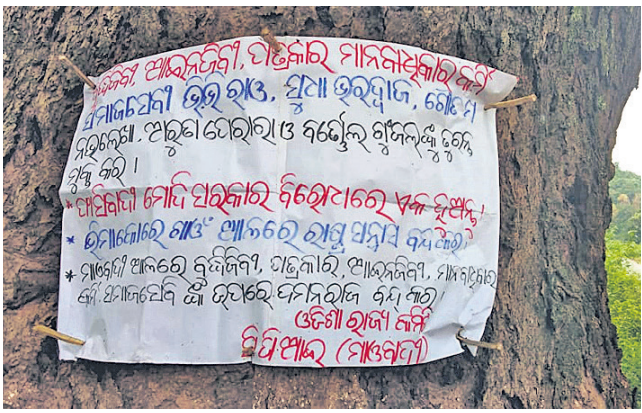 ବୁଦ୍ଧିଜିବୀ, ଆଇନଜିବୀ, ପାତ୍ରକାର ମାନବାଧିକାର କର୍ମି
ସମାଜସେବୀ ଭିଭି ରାଓ, ସୁଧା ଭରଦ୍ୱାଜ, ଗୌତମ
ନଭଲେଖା, ଅରୁଣ ପେରାରା ଓ ବର୍ଣ୍ଣୋଲ ଗୁଂଜଲଙ୍କୁ ତୁରନ୍ତ
ମୁକ୍ତ କର ।
* ଫାସିବାଦୀ ମୋଦି ସରକାର ବିରୋଧରେ ଏକ ହୁଅନ୍ତୁ ।
* ଭିମାକୋରେ ଗାଓଁ ଆଳରେ ରାଷ୍ଟ୍ର ସନ୍ତ୍ରାସ ବନ୍ଦ କର ।
* ମାଓବାଦୀ ଆଳରେ ବୁଦ୍ଧିଜିବୀ, ପାତ୍ରକାର, ଆଇନଜିବୀ, ମାନବାଧିକାର
କର୍ମି ସମାଜସେବି ଙ୍କ ଉପରେ ଦମନରାଜ ବନ୍ଦ କର ।
ଓଡିଶା ରାଜ୍ୟ କମିଟି
ସିପିଆଇ (ମାଓବାଦୀ)